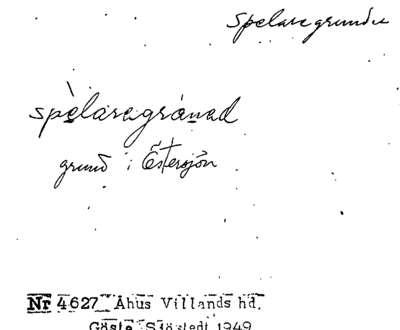 Spelaregrundet
spèlaregrànad
grund i Östersjön
Nr 4627 Åhus Villands hd.
Gösta Sjöstedt 1949